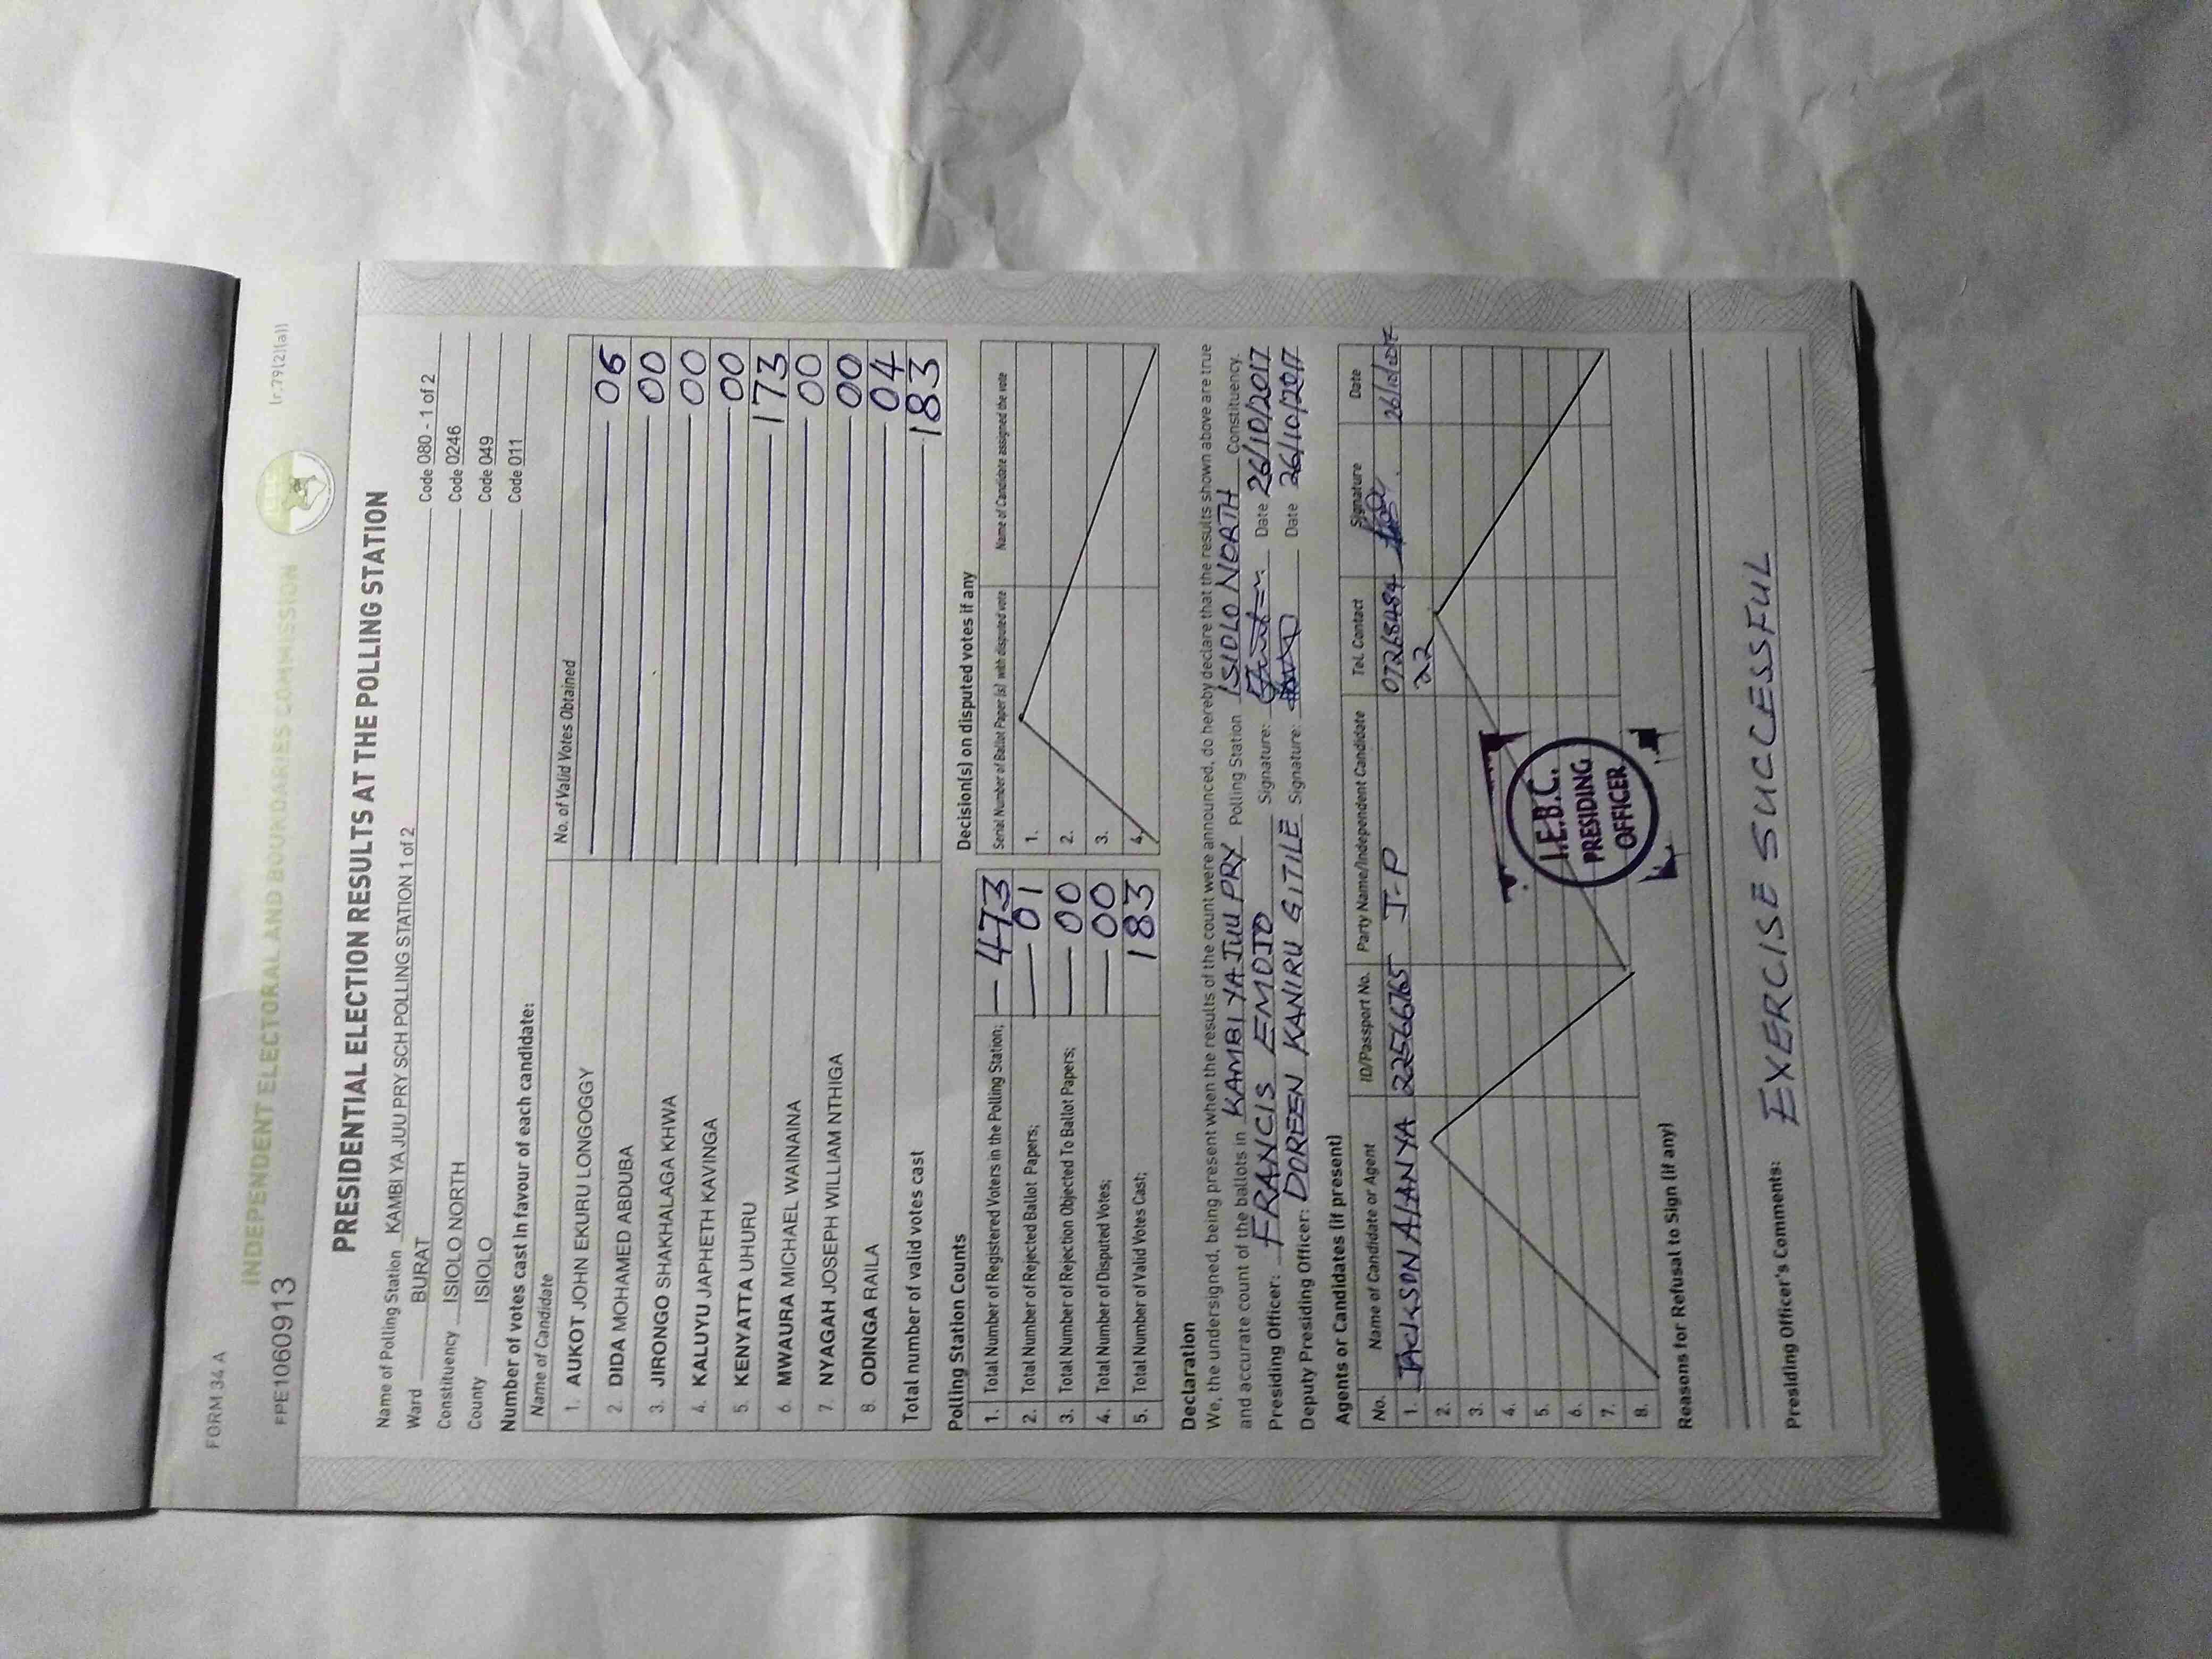 FORM 34 A
(r.79(2)(a))
INDEPENDENT ELECTORAL AND BOUNDARIES COMMISSION
FPE1060913
PRESIDENTIAL ELECTION RESULTS AT THE POLLING STATION
Name of Polling Station KAMBI YA JUU PRY SCH POLLING STATION 1 of 2 Code 080 - 1 of 2
Ward BURAT Code 0246
Constituency ISIOLO NORTH Code 049
County ISIOLO Code 011
Number of votes cast in favour of each candidate:
Name of Candidate No. of Valid Votes Obtained
1. AUKOT JOHN EKURU LONGOGGY 06
2. DIDA MOHAMED ABDUBA 00
3. JIRONGO SHAKHALAGA KHWA 00
4. KALUYU JAPHETH KAVINGA 00
5. KENYATTA UHURU 173
6. MWAURA MICHAEL WAINAINA 00
7. NYAGAH JOSEPH WILLIAM NTHIGA 00
8. ODINGA RAILA 04
Total number of valid votes cast 183
Polling Station Counts
1. Total Number of Registered Voters in the Polling Station; 473
2. Total Number of Rejected Ballot Papers; 01
3. Total Number of Rejection Objected To Ballot Papers; 00
4. Total Number of Disputed Votes; 00
5. Total Number of Valid Votes Cast; 183
Decision(s) on disputed votes if any
Serial Number of Ballot Paper (s) with disputed vote Name of Candidate assigned the vote
1.
2.
3.
4.
Declaration
We, the undersigned, being present when the results of the count were announced, do hereby declare that the results shown above are true
and accurate count of the ballots in KAMBI YA JUU PRY Polling Station ISIOLO NORTH Constituency.
Presiding Officer: FRANCIS EMOJO Signature: Date 26/10/2017
Deputy Presiding Officer: DOREEN KANIRU GITILE Signature: Date 26/10/2017
Agents or Candidates (if present)
No. Name of Candidate or Agent ID/Passport No. Party Name/Independent Candidate Tel. Contact Signature Date
1. JACKSON ALANYA 22566765 J-P 07268484 26/10/2017
2. 22
3.
4.
5.
6.
7.
8.
I.E.B.C.
PRESIDING
OFFICER
Reasons for Refusal to Sign (if any)
Presiding Officer's Comments:
EXERCISE SUCCESSFUL